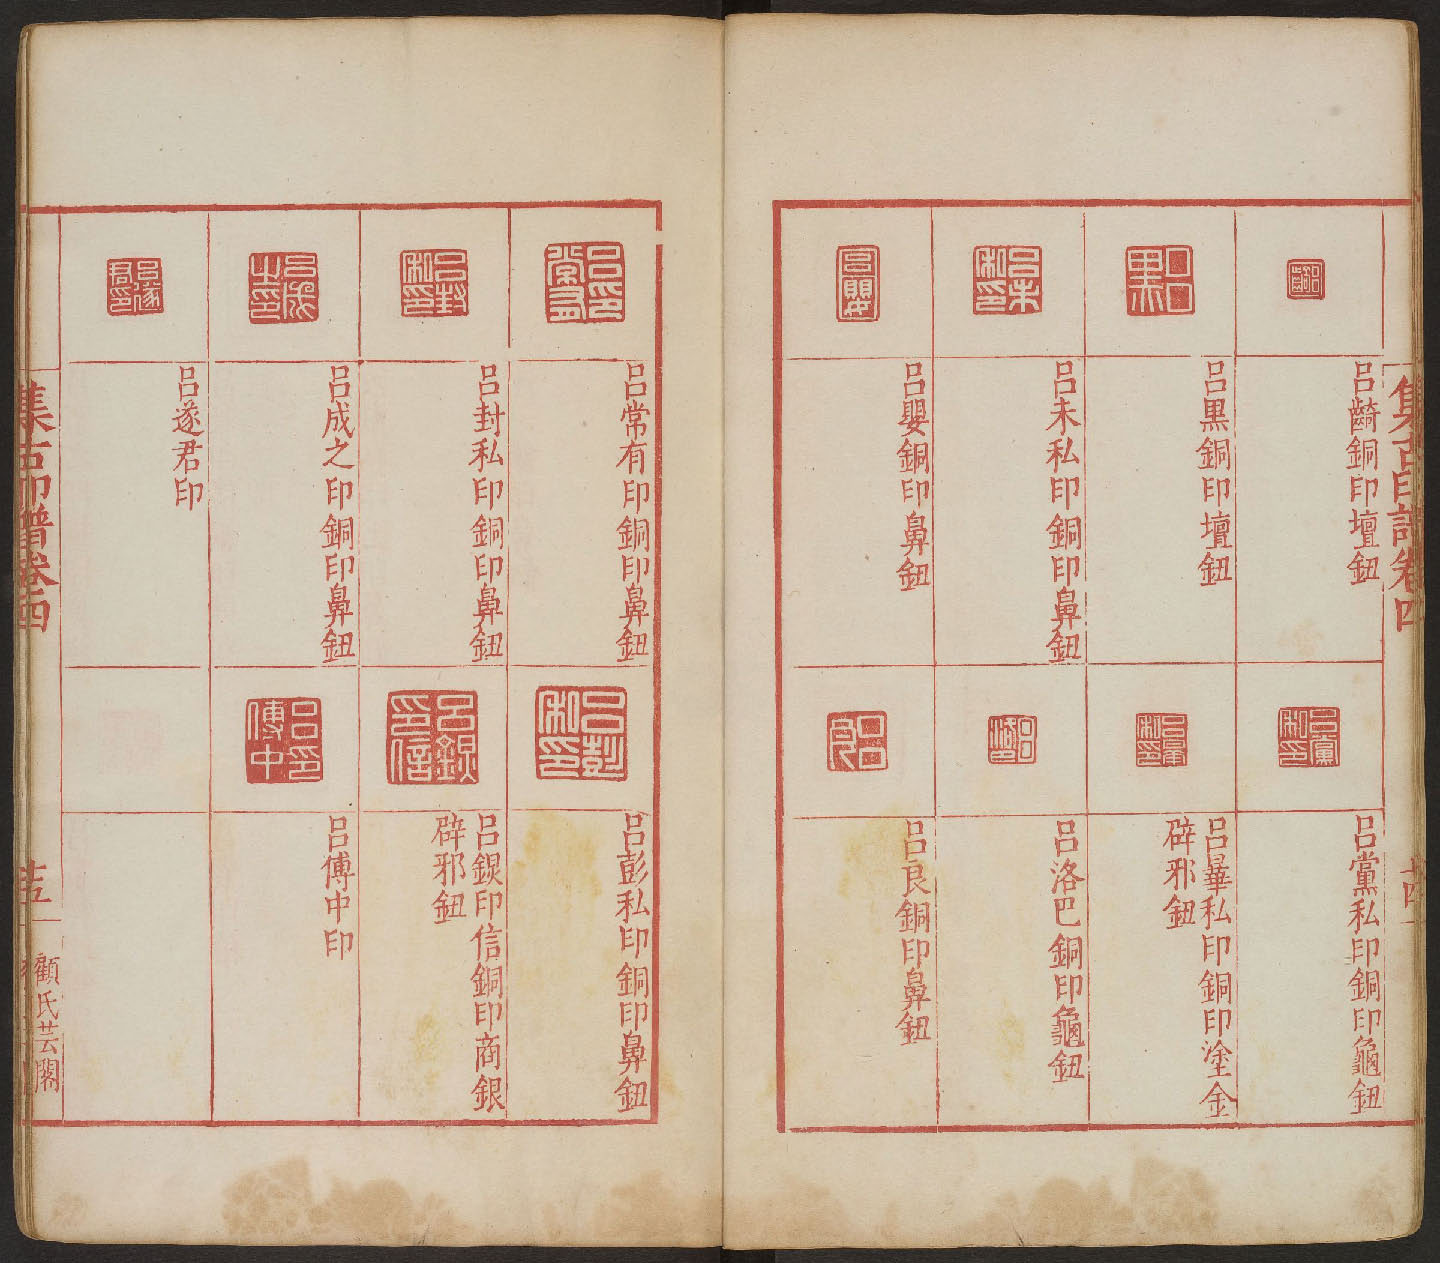 集古印譜卷四
呂齮銅印壇鈕
呂黑銅印壇鈕
呂未私印銅印鼻鈕
呂嬰銅印鼻鈕
呂黨私印銅印龜鈕
呂畢私印銅印塗金
辟邪鈕
呂洛巴銅印龜鈕
呂良銅印鼻鈕
十四
呂常有印銅印鼻鈕
呂封私印銅印鼻鈕
呂成之印銅印鼻鈕
呂遂君印
呂彭私印銅印鼻鈕
呂鋧印信銅印商銀
辟邪鈕
呂傅中印
集古印譜卷四
十五
顧氏芸閣